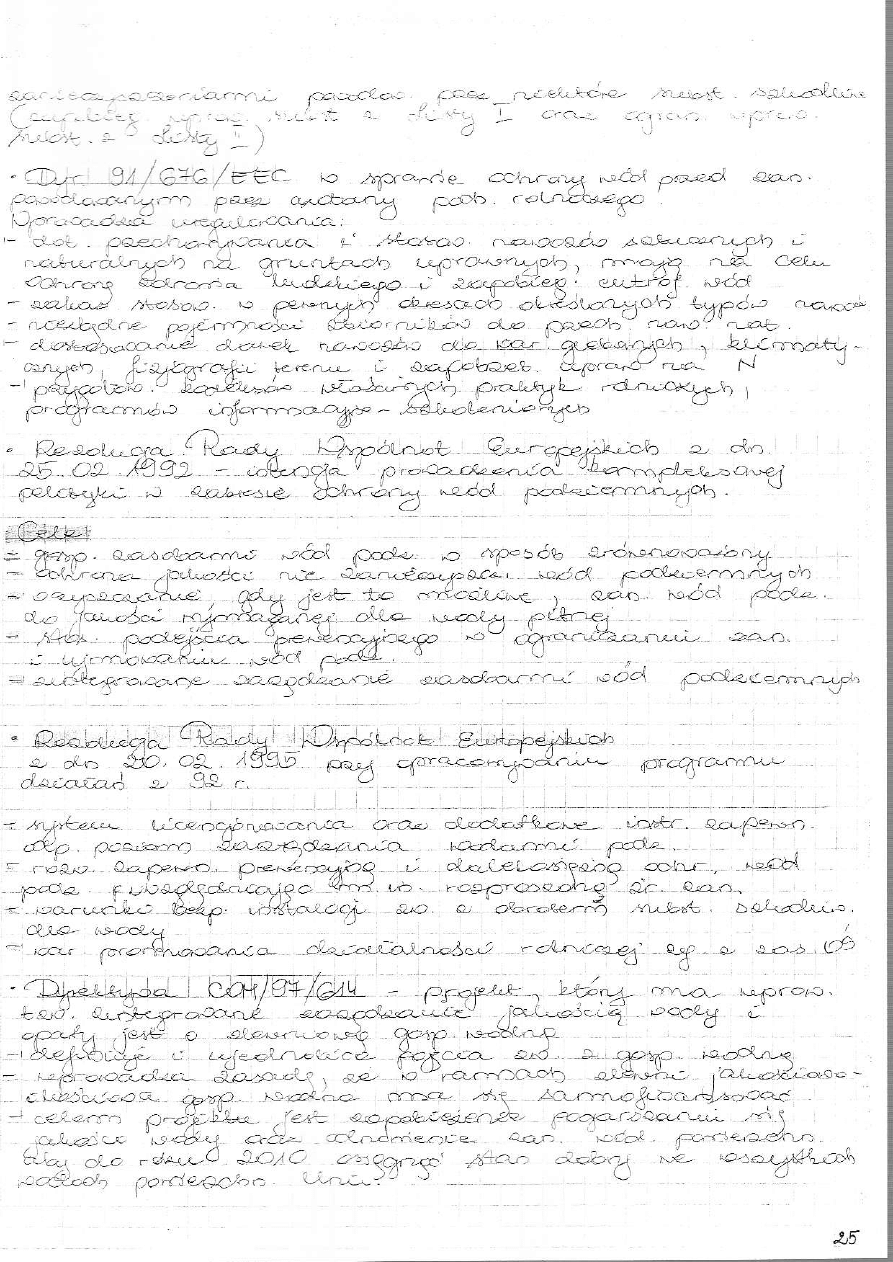 zanieczyszczeniami powodow. przez niektóre subst. szkodliwe
(zapobieg. wprow. subst z Listy I oraz ogran. wprow.
subst. z Listy II)
• Dyr. 91/676/EEC w sprawie ochrony wód przed zan.
powodowanym przez azotany poch. rolniczego.
Wprowadza uregulowania:
- dot. przechowywania i stosow. nawozów sztucznych i
naturalnych na gruntach uprawnych, mają na celu
ochronę zdrowia ludzkiego i zapobieg. eutrof. wód
- zakaz stosow. w pewnych okresach określonych typów nawozów
- niezbędne pojemności zbiorników do przech. naw. nat.
- dostosowanie dawek nawozów dla war. glebowych, klimaty-
cznych, fizjografii terenu i zapotrzeb. upraw na N
- przygotow. kodeksów właściwych praktyk rolniczych,
programów informacyjno-szkoleniowych
• Rezolucja Rady Wspólnot Europejskich z dn.
25.02.1992 - intencja prowadzenia kompleksowej
polityki w zakresie ochrony wód podziemnych.
Cele:
- gosp. zasobami wód podz. w sposób zrównoważony
- ochrona jakości nie zanieczyszcz. wód podziemnych
- oczyszczanie, gdy jest to możliwe, zan. wód podz.
do jakości wymaganej dla wody pitnej
- stos. podejścia prewencyjnego w ograniczaniu zan.
i ujmowaniu wód podz.
- zintegrowane zarządzanie zasobami wód podziemnych
• Rezolucja Rady Wspólnot Europejskich
z dn 20.02.1995 przy opracowywaniu programu
działań z 92 r.
- system licencjonowania oraz dodatkowe instr. zapewn.
odp. poziom zarządzania wodami podz.
- rozw. zapewn. prewencyjną i dalekosiężną ochr. wód
podz. uwzględniającą m.in. rozproszone źr. zan.
- warunki bezp. instalacji zw. z obrotem subst. szkodliw.
dla wody
- war promowania działalności rolniczej zg z zas OŚ
• Dyrektywa COM/97/614 - projekt, który ma wprow.
tzw. zintegrowane zarządzanie jakością wody i
oparty jest o zlewniową gosp. wodną
- definiuje i ujednolica pojęcia zw z gosp. wodną
- wprowadza zasadę, że w ramach zlewni jakościowo-
ilościowa gosp. wodna ma się samofinansować
- celem projektu jest zapobieżenie pogarszaniu się
jakości wody oraz odnowienie zan. wód. powierzchn.
tak, aby do roku 2010 osiągnąć stan dobry we wszystkich
wodach powierzchn. Unii.
25